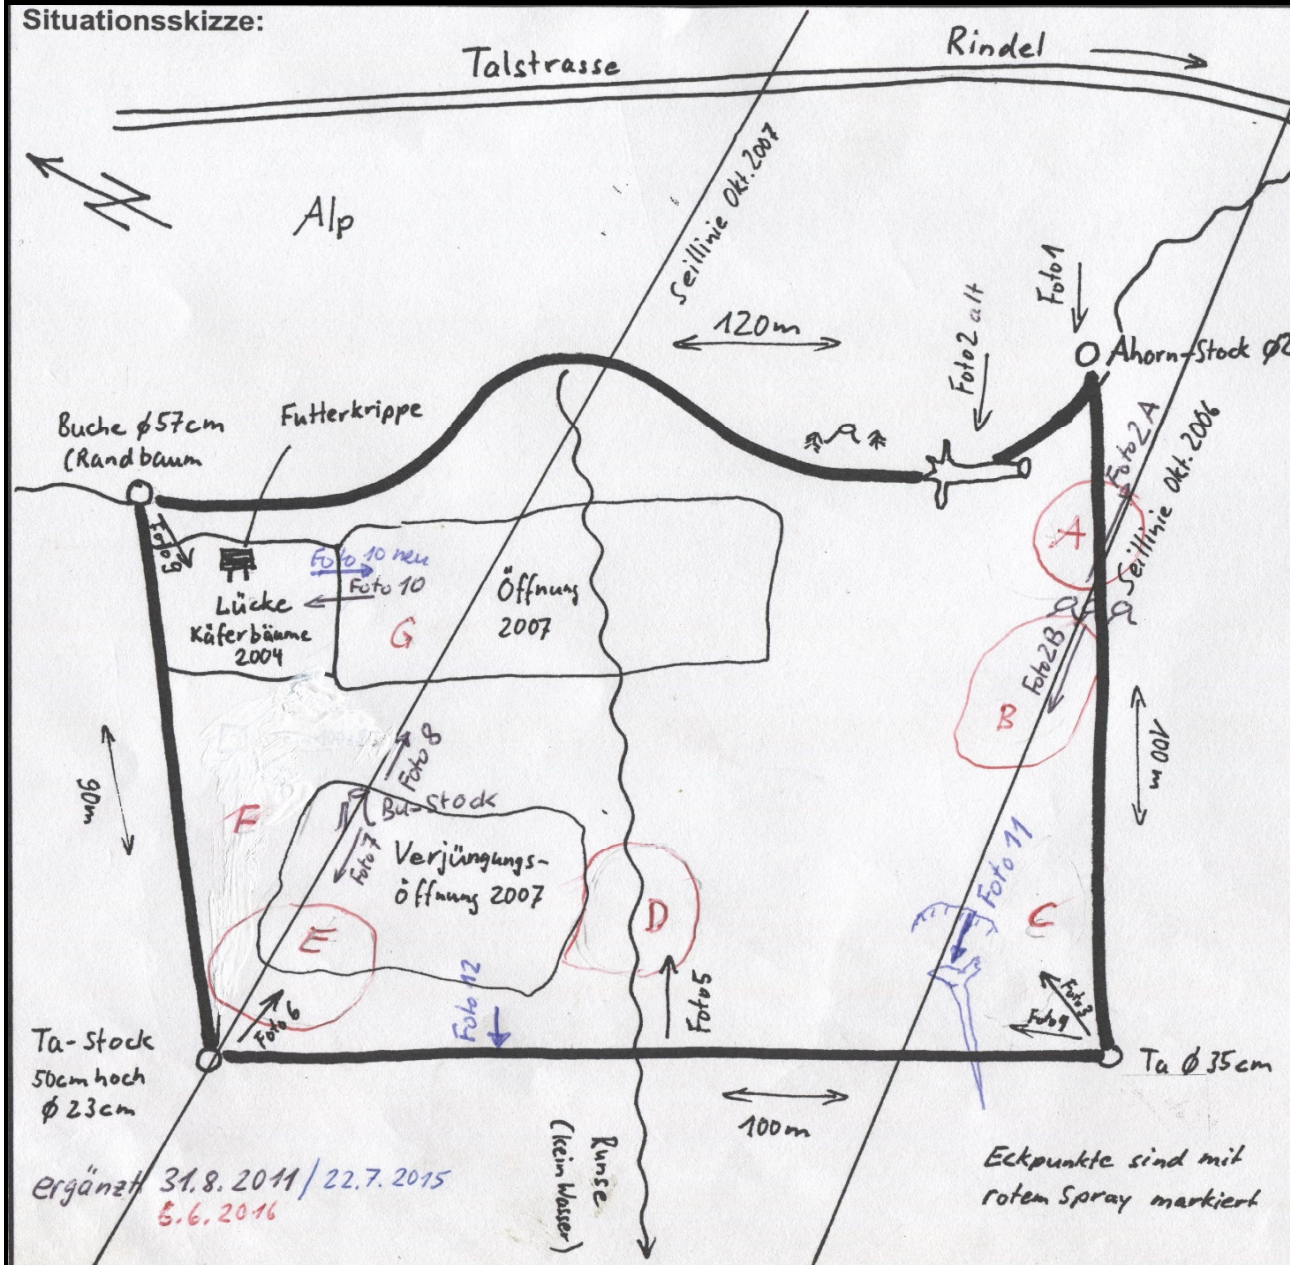 Situationsskizze:
Talstrasse
Rindel
Alp
Seillinie Okt. 2007
120m
Foto 2 alt
Foto 1
Ahorn-Stock ø2
Buche ø 57cm
(Randbaum
Futterkrippe
Foto 2A
Seillinie Okt. 2006
A
Foto 9
Foto 10 neu
Foto 10
Lücke
Käferbäume
2004
G
Öffnung
2007
Foto 2B
B
100m
90m
Foto 8
F
Bu-Stock
Foto 7
Verjüngungs-
öffnung 2007
E
D
Foto 11
C
Foto 6
Foto 12
Foto 5
Foto 3
Ta-Stock
50cm hoch
ø 23cm
Ta ø 35cm
100m
Runse
(kein Wasser)
Eckpunkte sind mit
rotem Spray markiert
ergänzt 31.8.2011 / 22.7.2015
5.6.2016